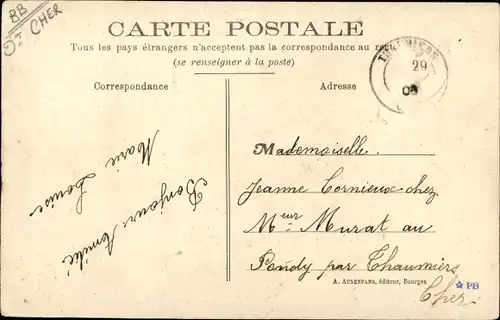 BB
Dt CHER
CARTE POSTALE
Tous les pays étrangers n'acceptent pas la correspondance au
(se renseigner à la poste)
Correspondance
Adresse
29
Marie
Louise
Bonjour. Amitié
Mademoiselle.
Jeanne Cornieux chez
Meur Murat au
Pondy par Thaumiers
Cher
A. AUXENFANS, éditeur, Bourges
PB